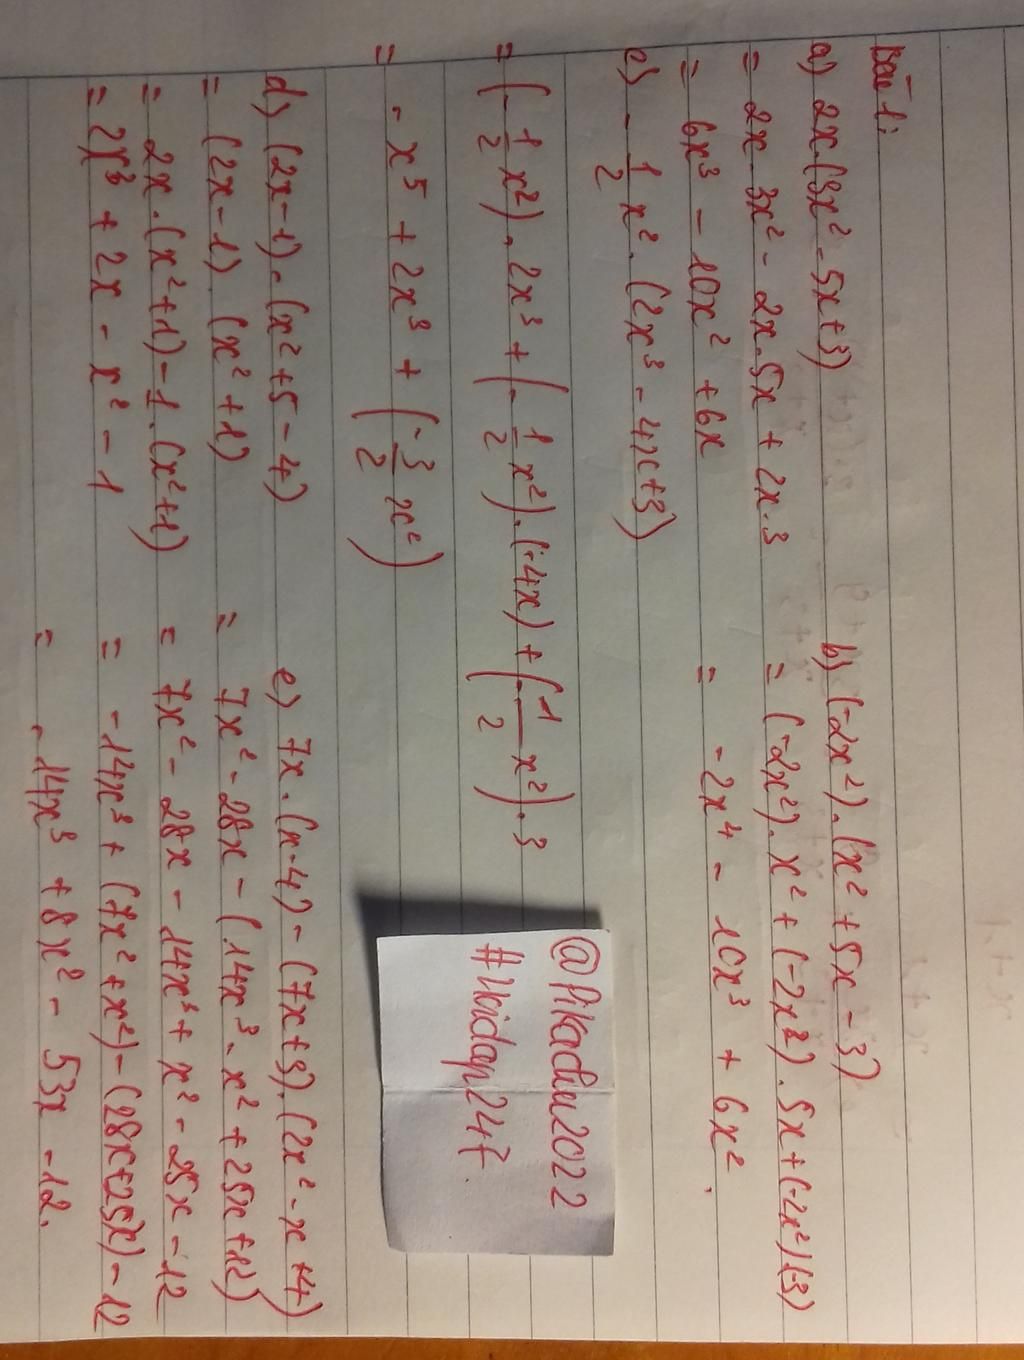 Bài 1:
a) 2x.(3x² - 5x + 3)
= 2x . 3x² - 2x . 5x + 2x . 3
= 6x³ - 10x² + 6x
b) (-2x²).(x² + 5x - 3)
= (-2x²) . x² + (-2x²) . 5x + (-2x²)(-3)
= -2x⁴ - 10x³ + 6x².
c) -1/2 x² . (2x³ - 4x + 3)
= (-1/2 x²) . 2x³ + (-1/2 x²) . (-4x) + (-1/2 x²) . 3
= -x⁵ + 2x³ + (-3/2 x²)
@Pikachu2022
#Hoidap247
d) (2x - 1) . (x² + 5 - 4)
= (2x - 1) . (x² + 1)
= 2x . (x² + 1) - 1 . (x² + 1)
= 2x³ + 2x - x² - 1
e) 7x . (x - 4) - (7x + 3).(2x² - x + 4)
= 7x² - 28x - (14x³ - x² + 25x + 12)
= 7x² - 28x - 14x³ + x² - 25x - 12
= -14x³ + (7x² + x²) - (28x + 25x) - 12
= -14x³ + 8x² - 53x - 12.